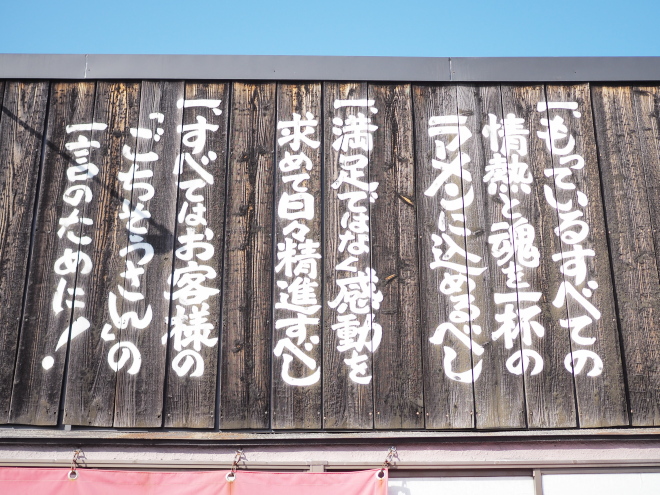 一、もっているすべての
情熱と魂を一杯の
ラーメンに込めるべし
一、満足ではなく感動を
求めて日々精進すべし
一、すべてはお客様の
「ごちそうさん」の
一言のために！